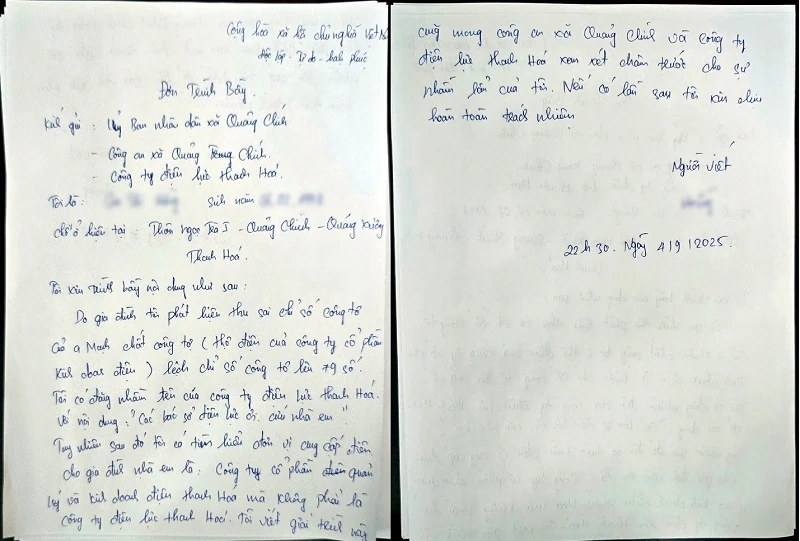 Cộng hòa xã hội chủ nghĩa Việt Na
Độc lập - Tự do - hạnh phúc
Đơn Trình Bầy.
Kính gửi : Uỷ Ban nhân dân xã Quảng Chính
- Công an xã Quảng Chính.
- Công ty điện lực thanh Hoá.
Tôi là : sinh năm
chỗ ở hiện tại : Thôn Ngọc Trà I - Quảng Chính - Quảng Xương
Thanh Hoá.
Tôi xin trình bầy nội dung như sau :
Do gia đình tôi phát hiện thu sai chỉ số công tơ
a Mạnh chốt công tơ ( thợ điện của công ty cổ phần
kinh doanh điện ) lệch chỉ số công tơ lên 79 số.
Tôi có đăng nhầm tên của công ty điện lực thanh Hoá.
Với nội dung : " Các bác sở điện lực ơi. cứu nhà em "
Tuy nhiên sau đó tôi có tìm hiểu đơn vị cung cấp điện
cho gia đình nhà em là : Công ty cổ phần quản
lý và kinh doanh điện thanh Hoá mà không phải là
công ty điện lực thanh Hoá. Tôi viết giải trình này
cũng mong công an xã Quảng Chính và công ty
điện lực thanh Hoá xem xét châm trước cho sự
nhầm lẫn của tôi. Nếu có lần sau tôi xin chịu
hoàn toàn trách nhiệm
Người viết
22h 30. Ngày 4/9/2025.